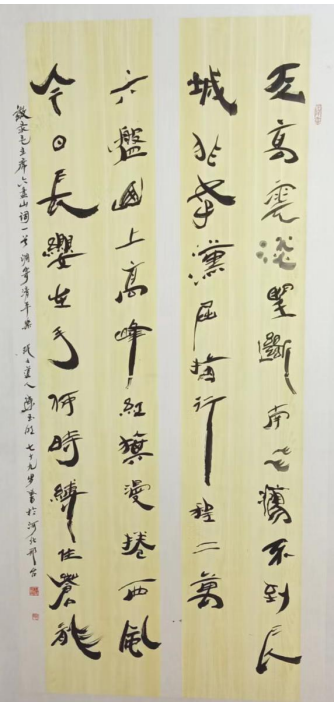 天高雲淡望斷南飛雁不到長
城非好漢屈指行程二萬
六盤山上高峰紅旗漫捲西風
今日長纓在手何時縛住蒼龍
敬录毛主席六盘山词一首調寄清平樂 七十九岁書於河北邢台